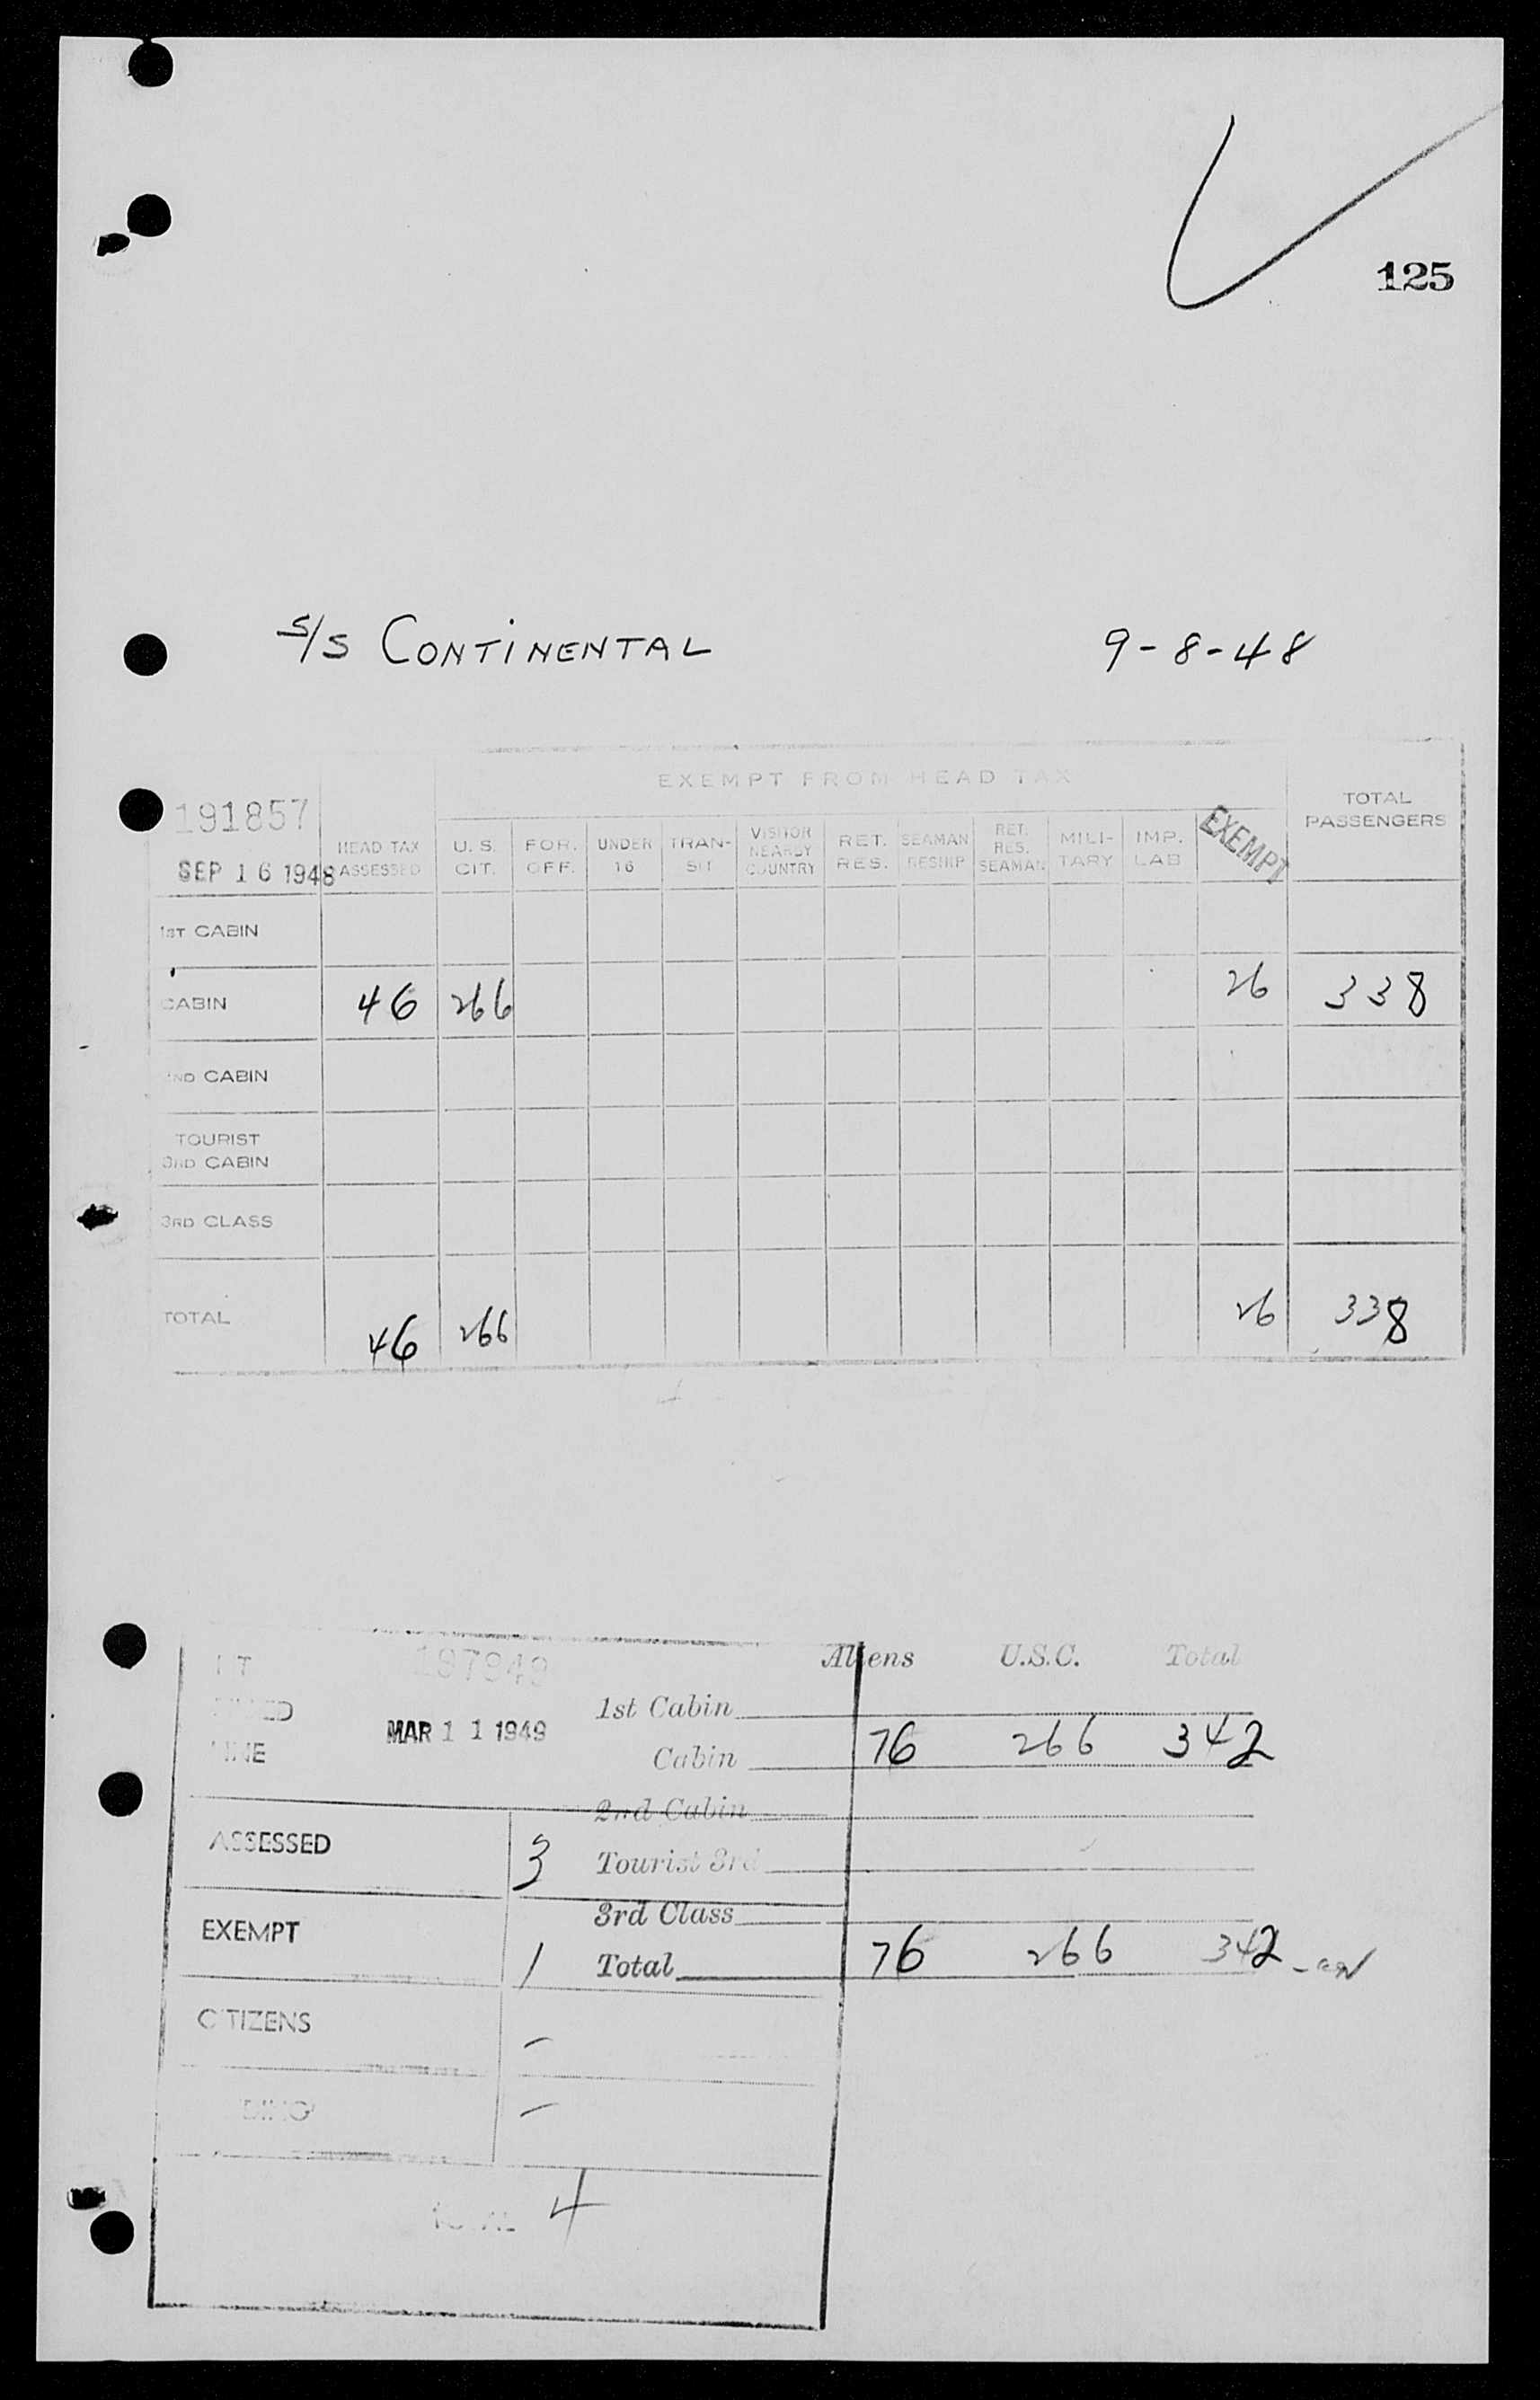 125
S/S CONTINENTAL 9-8-48
EXEMPT FROM HEAD TAX
191857
SEP 16 1948
HEAD TAX ASSESSED
U. S. CIT.
FOR. OFF.
UNDER 16
TRAN- SIT
VISITOR NEARBY COUNTRY
RET. RES.
SEAMAN DESHIP
RET. RES. SEAMAN
MILI- TARY
IMP. LAB
EXEMPT
TOTAL PASSENGERS
1ST CABIN
CABIN 46 266 26 338
2ND CABIN
TOURIST
3RD CABIN
3RD CLASS
TOTAL 46 266 26 338
Aliens U.S.C. Total
MAR 11 1949
1st Cabin
Cabin 76 266 342
2nd Cabin
ASSESSED 3
Tourist 3rd
3rd Class
EXEMPT 1
Total 76 266 342
CITIZENS –
–
TOTAL 4